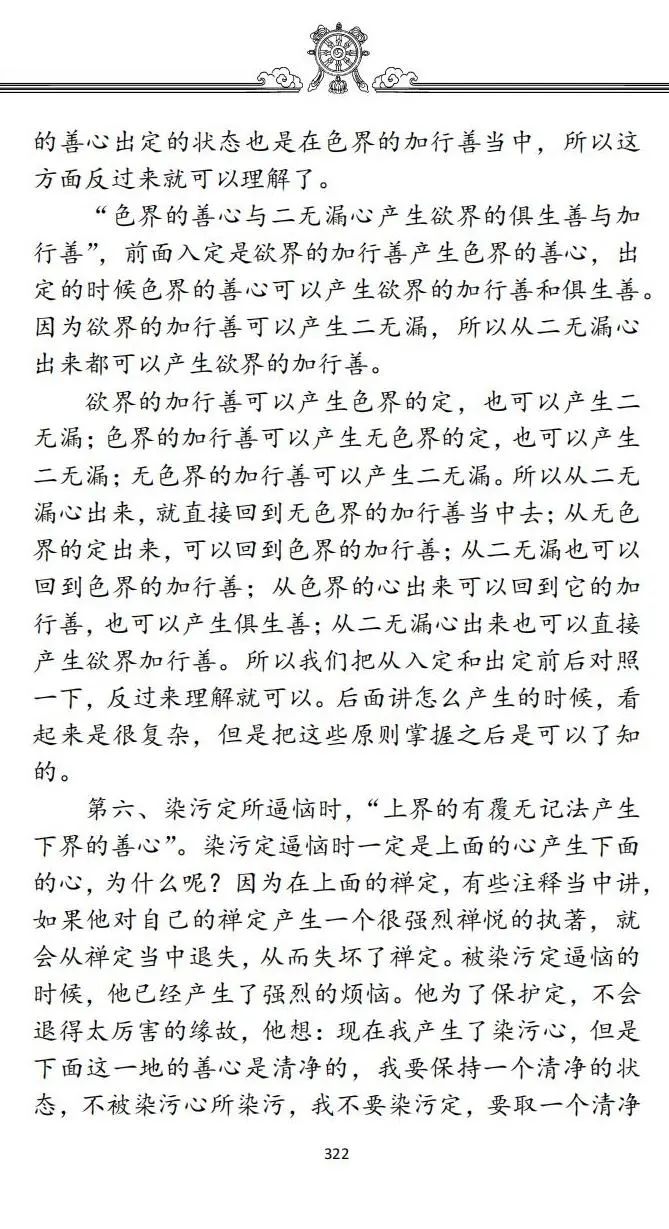 的善心出定的状态也是在色界的加行善当中，所以这
方面反过来就可以理解了。
“色界的善心与二无漏心产生欲界的俱生善与加
行善”，前面入定是欲界的加行善产生色界的善心，出
定的时候色界的善心可以产生欲界的加行善和俱生善。
因为欲界的加行善可以产生二无漏，所以从二无漏心
出来都可以产生欲界的加行善。
欲界的加行善可以产生色界的定，也可以产生二
无漏；色界的加行善可以产生无色界的定，也可以产生
二无漏；无色界的加行善可以产生二无漏。所以从二无
漏心出来，就直接回到无色界的加行善当中去；从无色
界的定出来，可以回到色界的加行善；从二无漏也可以
回到色界的加行善；从色界的心出来可以回到它的加
行善，也可以产生俱生善；从二无漏心出来也可以直接
产生欲界加行善。所以我们把从入定和出定前后对照
一下，反过来理解就可以。后面讲怎么产生的时候，看
起来是很复杂，但是把这些原则掌握之后是可以了知
的。
第六、染污定所逼恼时，“上界的有覆无记法产生
下界的善心”。染污定逼恼时一定是上面的心产生下面
的心，为什么呢？因为在上面的禅定，有些注释当中讲，
如果他对自己的禅定产生一个很强烈禅悦的执著，就
会从禅定当中退失，从而失坏了禅定。被染污定逼恼的
时候，他已经产生了强烈的烦恼。他为了保护定，不会
退得太厉害的缘故，他想：现在我产生了染污心，但是
下面这一地的善心是清净的，我要保持一个清净的状
态，不被染污心所染污，我不要染污定，要取一个清净
322